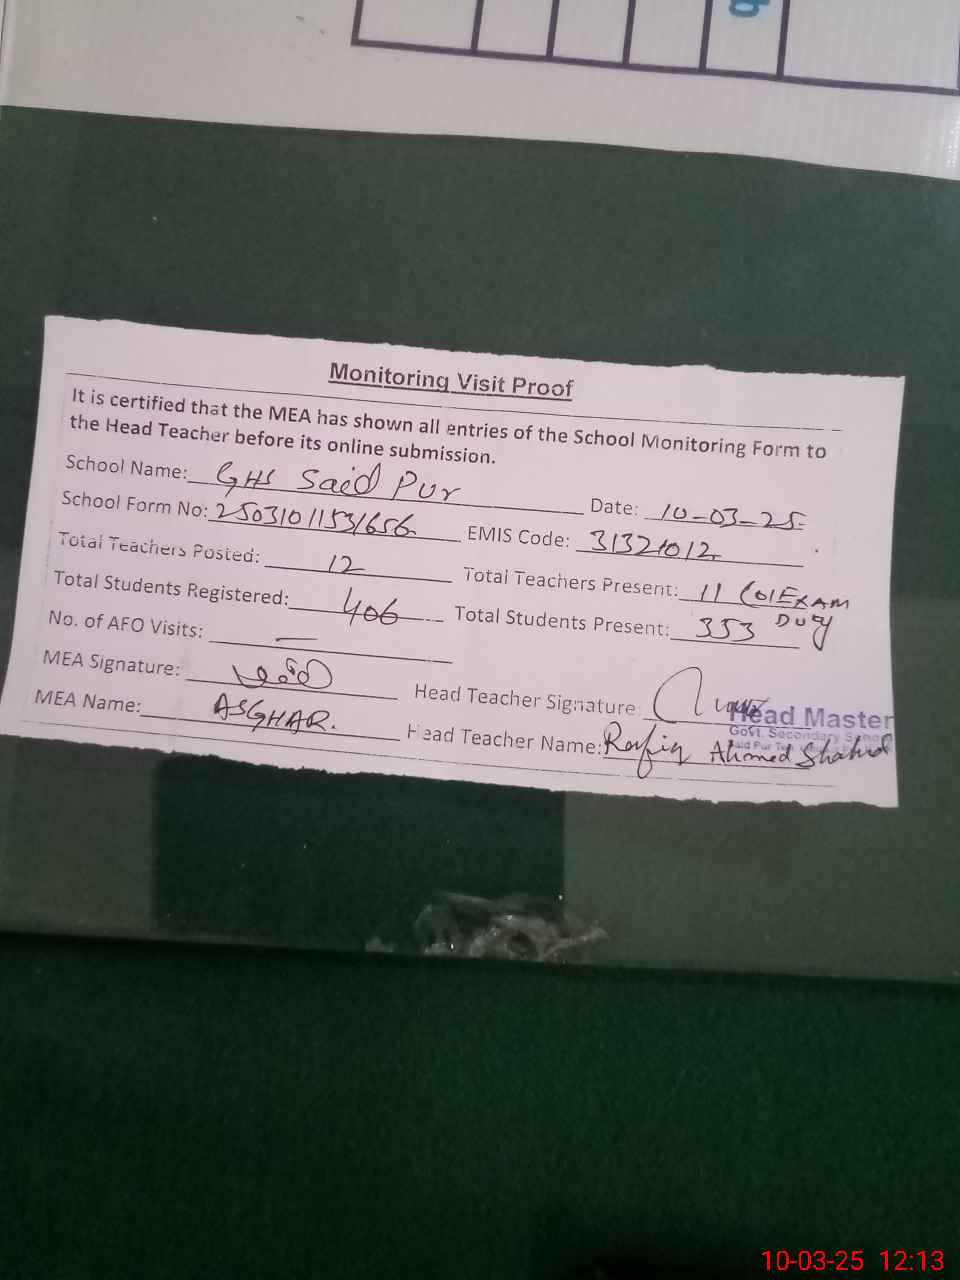 Monitoring Visit Proof
It is certified that the MEA has shown all entries of the School Monitoring Form to
the Head Teacher before its online submission.
School Name: GHS Said Pur Date: 10-03-25
School Form No: 2503101531656 EMIS Code: 31321012
Total Teachers Posted: 12 Total Teachers Present: 11 (01 EXAM
Duty
Total Students Registered: 406 Total Students Present: 353
No. of AFO Visits: —
MEA Signature: Head Teacher Signature
Head Master
Govt. Secondary School
Said Pur
MEA Name: ASGHAR. Head Teacher Name: Rafiq Ahmed Shahid
10-03-25 12:13